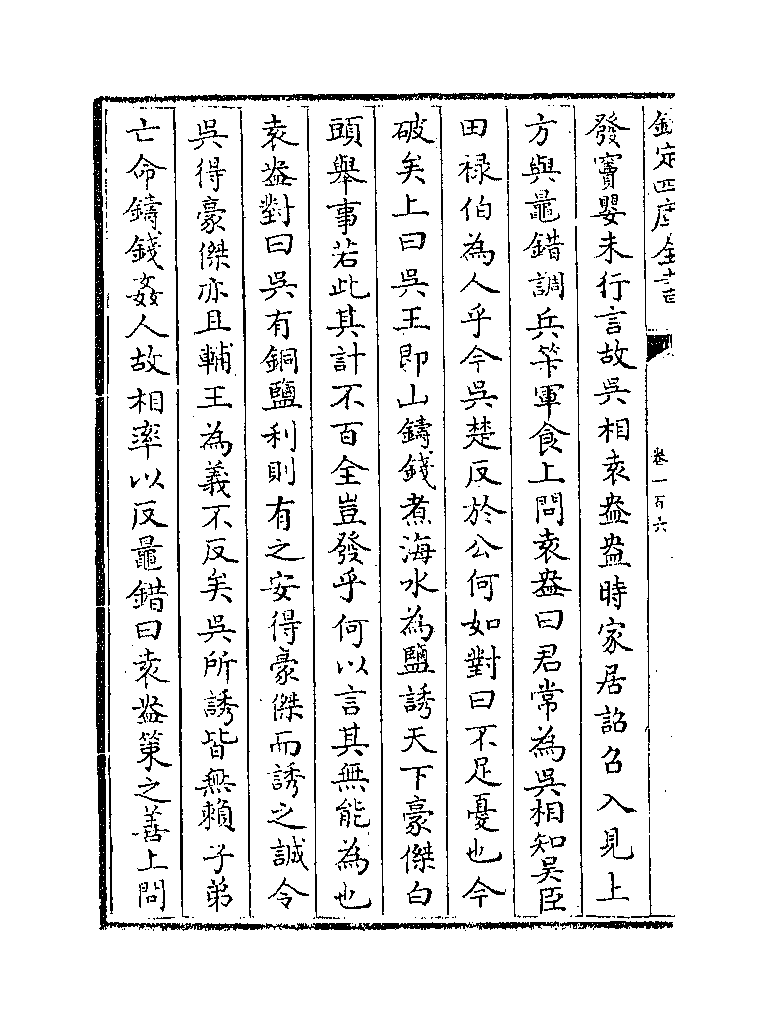 欽定四庫全書
卷一百六
發竇嬰未行言故吳相袁盎盎時家居詔召入見上
方與鼂錯調兵筭軍食上問袁盎曰君嘗為吳相知吳臣
田祿伯為人乎今吳楚反於公何如對曰不足憂也今
破矣上曰吳王即山鑄錢煮海水為鹽誘天下豪傑白
頭舉事若此其計不百全豈發乎何以言其無能為也
袁盎對曰吳有銅鹽利則有之安得豪傑而誘之誠令
吳得豪傑亦且輔王為義不反矣吳所誘皆無賴子弟
亡命鑄錢姦人故相率以反鼂錯曰袁盎策之善上問